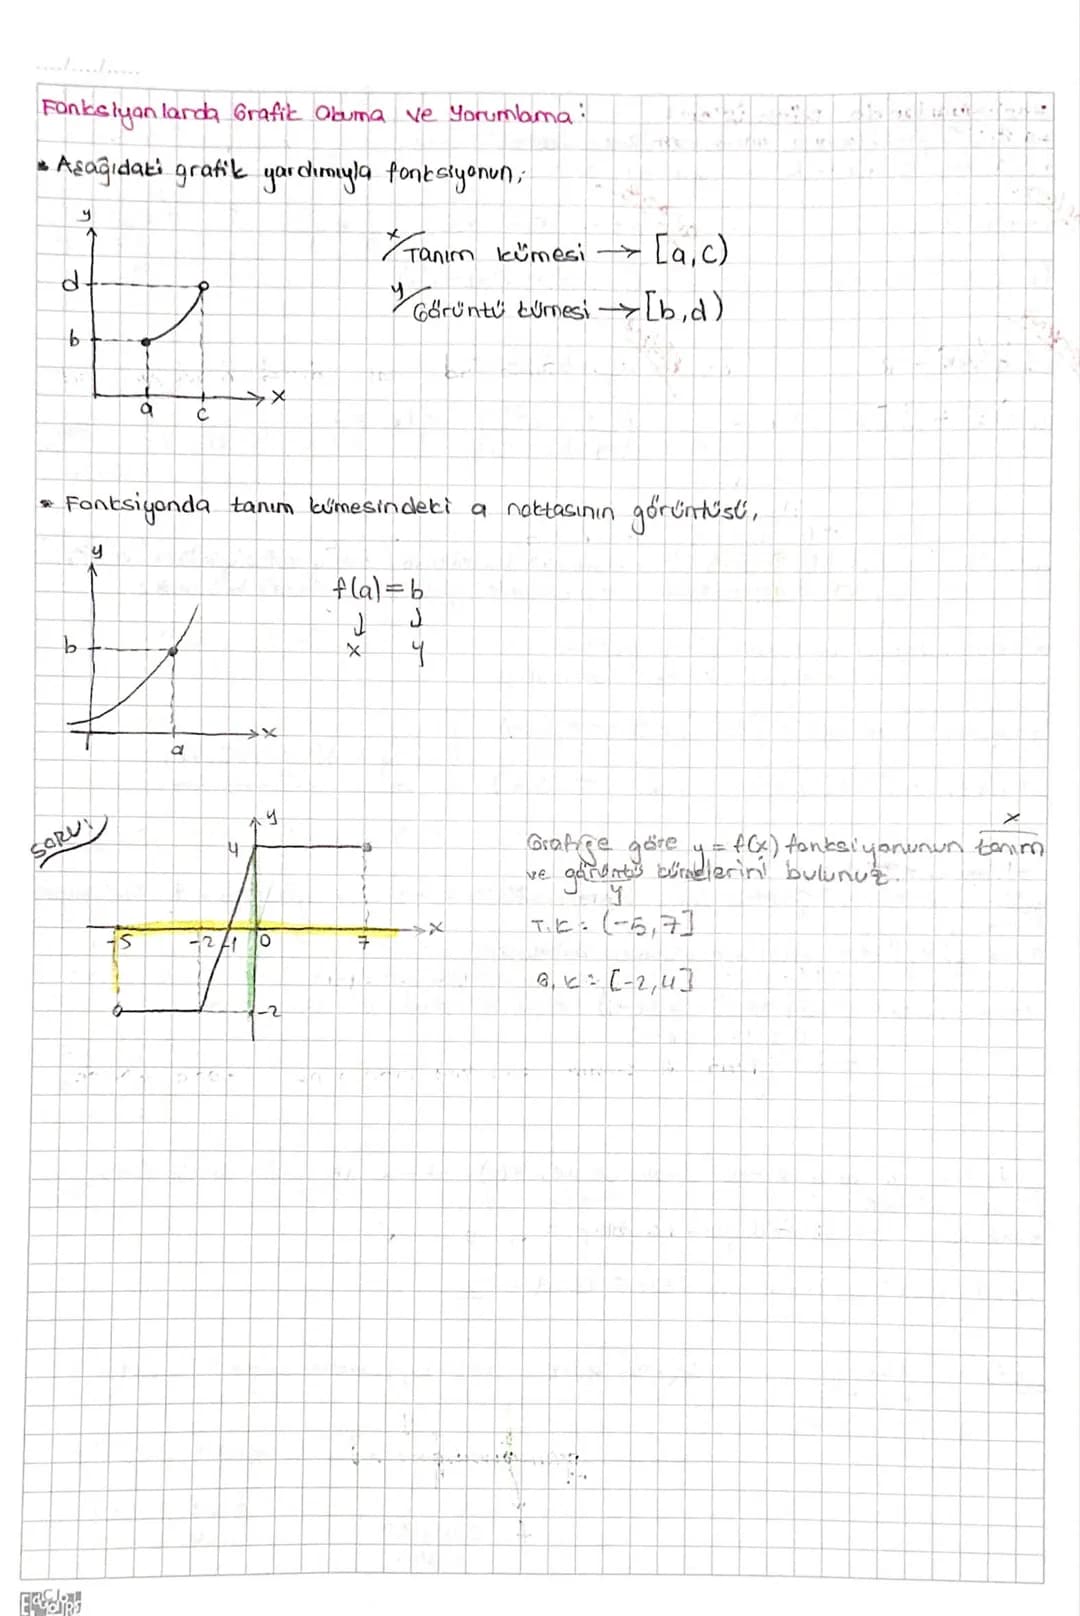 Fonksiyonlarda Grafik Okuma ve Yorumlama:
* Aşağıdaki grafik yardımıyla fonksiyonun;
y
d
b
a
c
x
x/Tanım kümesi → [a,c)
y/Görüntü kümesi → [b,d)
* Fonksiyonda tanım kümesindeki a noktasının görüntüsü,
y
b
a
x
f(a)=b
↓ ↓
x y
SORU:
y
4
-5 -2 -1 0 7 x
-2
x
Grafiğe göre y = f(x) fonksiyonunun tanım
ve görüntü kümelerini bulunuz.
y
T.K: (-5,7]
G.K: [-2,4]